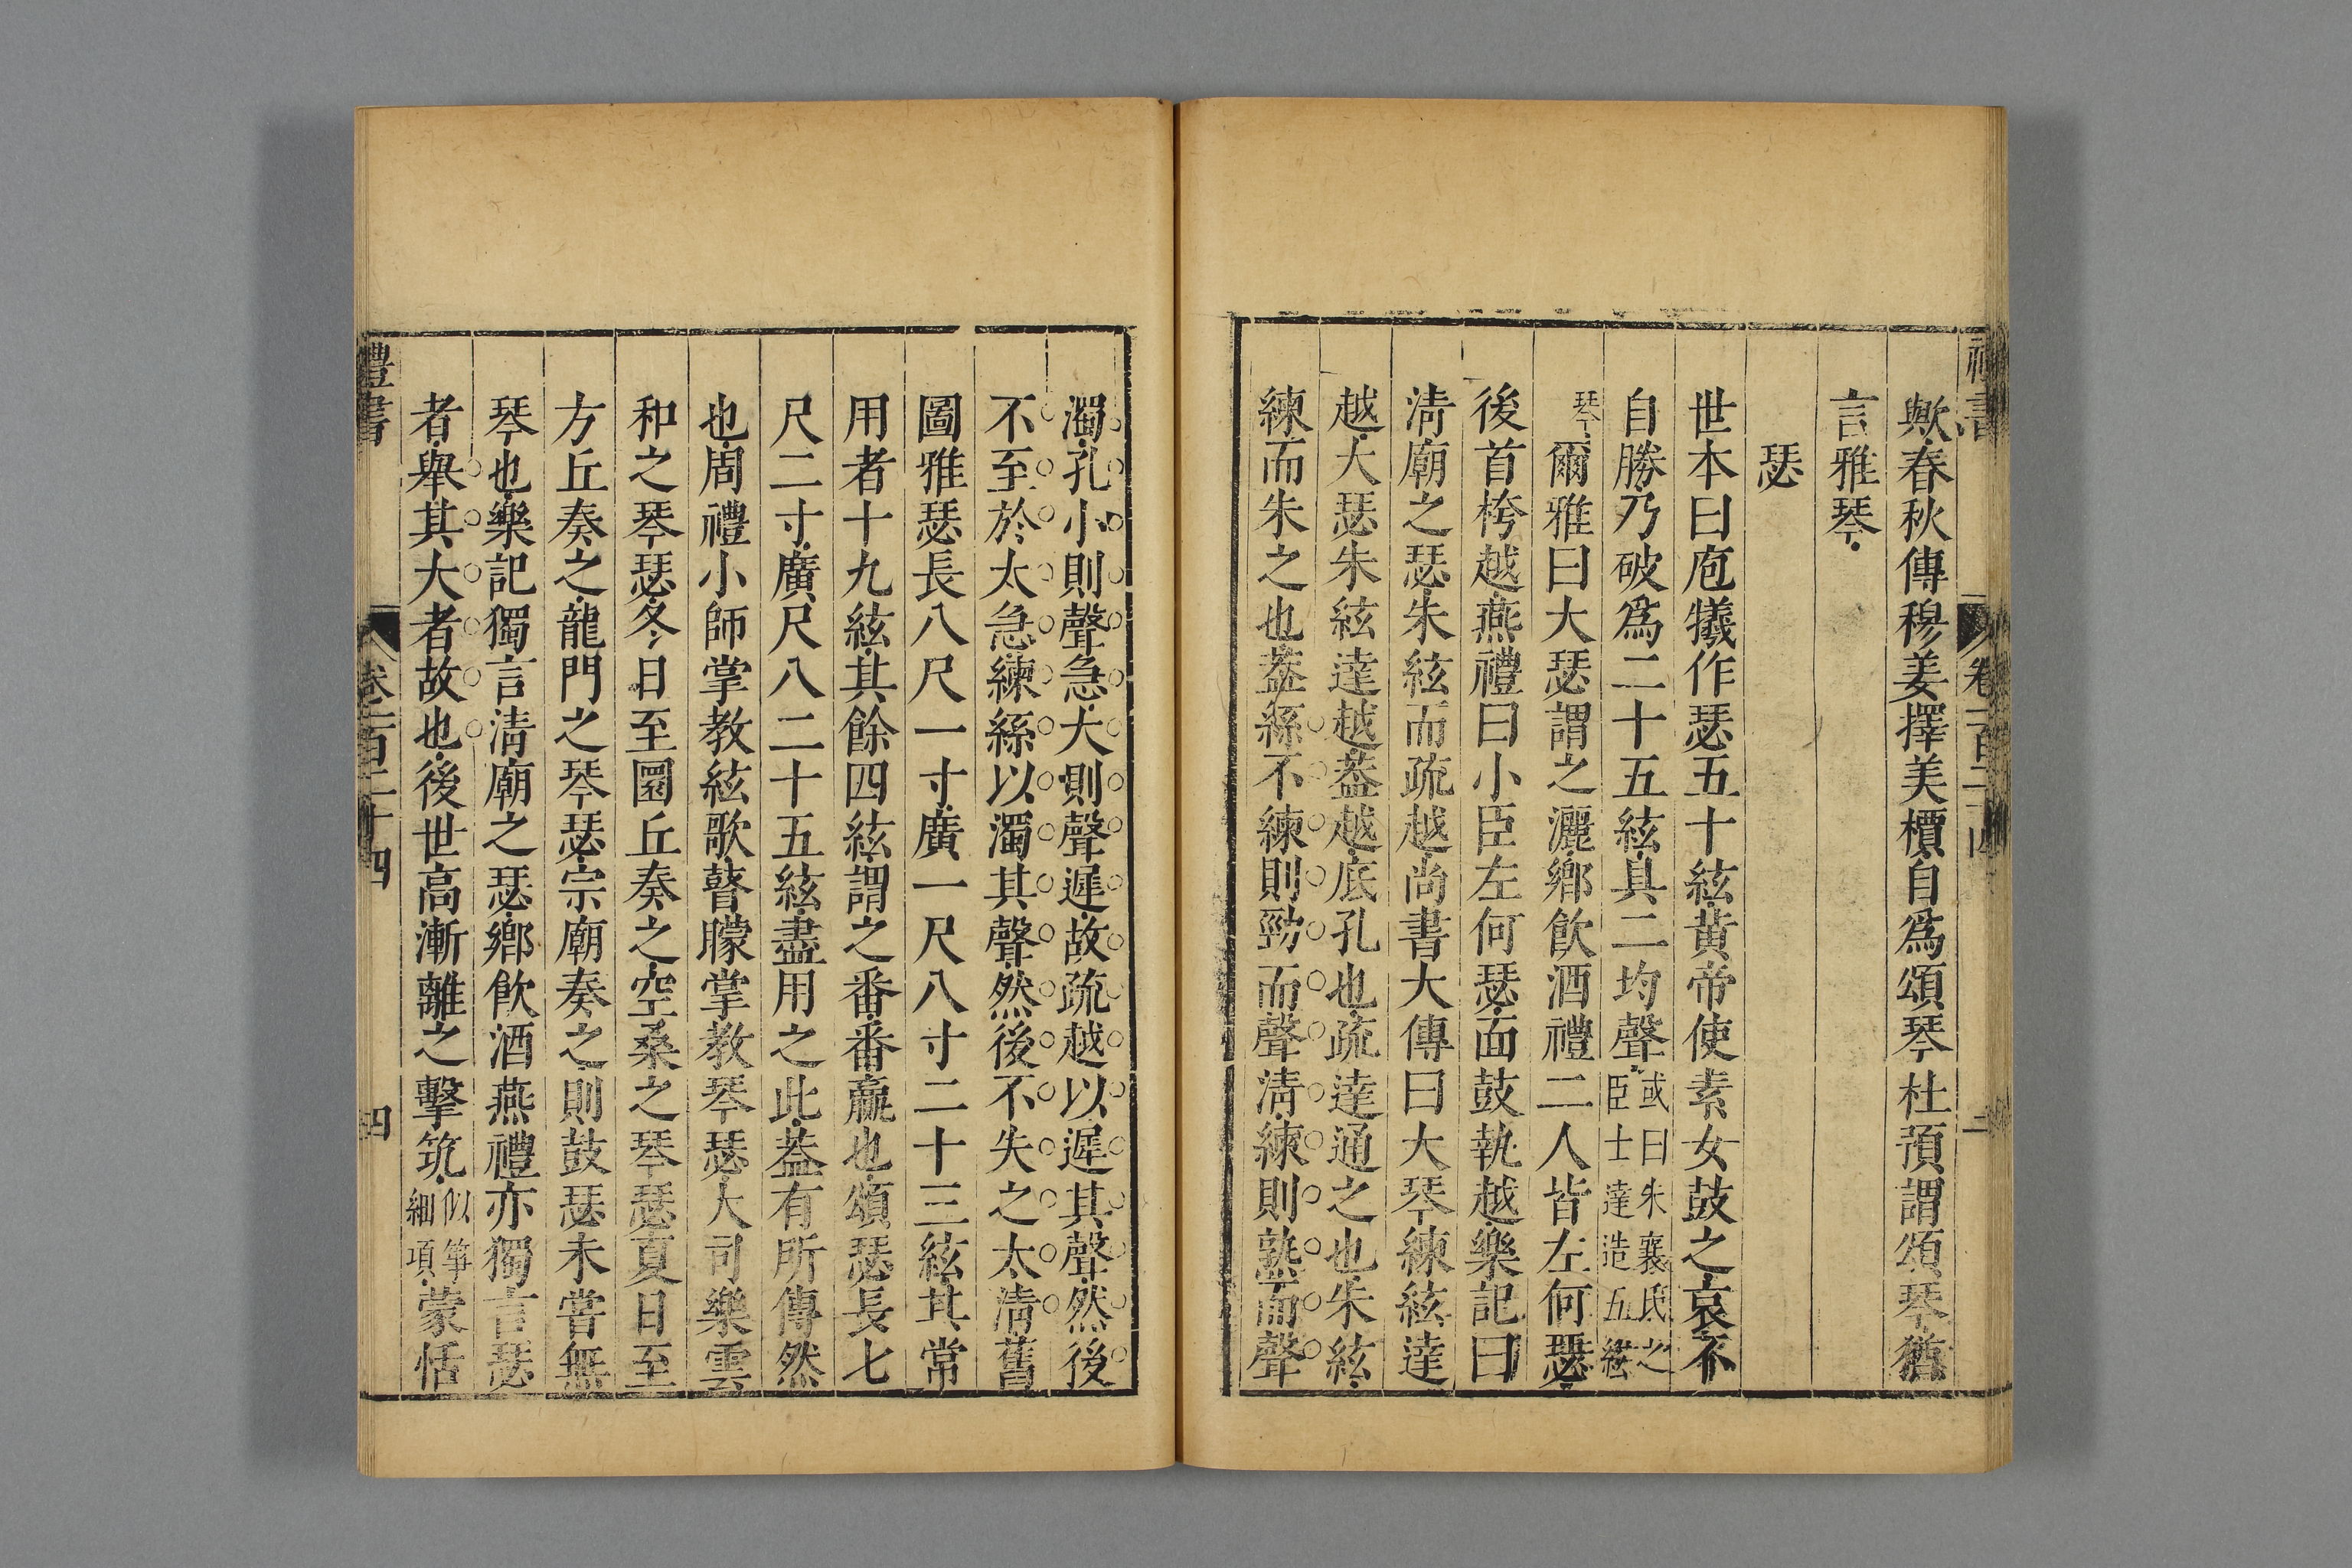 歟春秋傳穆姜擇美檟自爲頌琴杜預謂頌琴猶
言雅琴
瑟
世本曰庖犧作瑟五十絃黃帝使素女鼓之哀不
自勝乃破爲二十五絃具二均聲或曰朱襄氏之臣士達造五絃
琴爾雅曰大瑟謂之灑鄉飮酒禮二人皆左何瑟
後首挎越燕禮曰小臣左何瑟面鼓執越樂記曰
淸廟之瑟朱絃而疏越尚書大傳曰大琴練絃達
越大瑟朱絃達越葢越底孔也疏達通之也朱絃
練而朱之也葢絲不練則勁而聲淸練則熟而聲
濁孔小則聲急大則聲遲故疏越以遲其聲然後
不至於太急練絲以濁其聲然後不失之太淸舊
圖雅瑟長八尺一寸廣一尺八寸二十三絃其常
用者十九絃其餘四絃謂之番番贏也頌瑟長七
尺二寸廣尺八二十五絃盡用之此葢有所傳然
也周禮小師掌敎絃歌瞽矇掌敎琴瑟大司樂雲
和之琴瑟冬日至圜丘奏之空桑之琴瑟夏日至
方丘奏之龍門之琴瑟宗廟奏之則鼓瑟未嘗無
琴也樂記獨言淸廟之瑟鄉飮酒燕禮亦獨言瑟
者舉其大者故也後世高漸離之擊筑似箏細項蒙恬
禮書
卷一百二十四
四